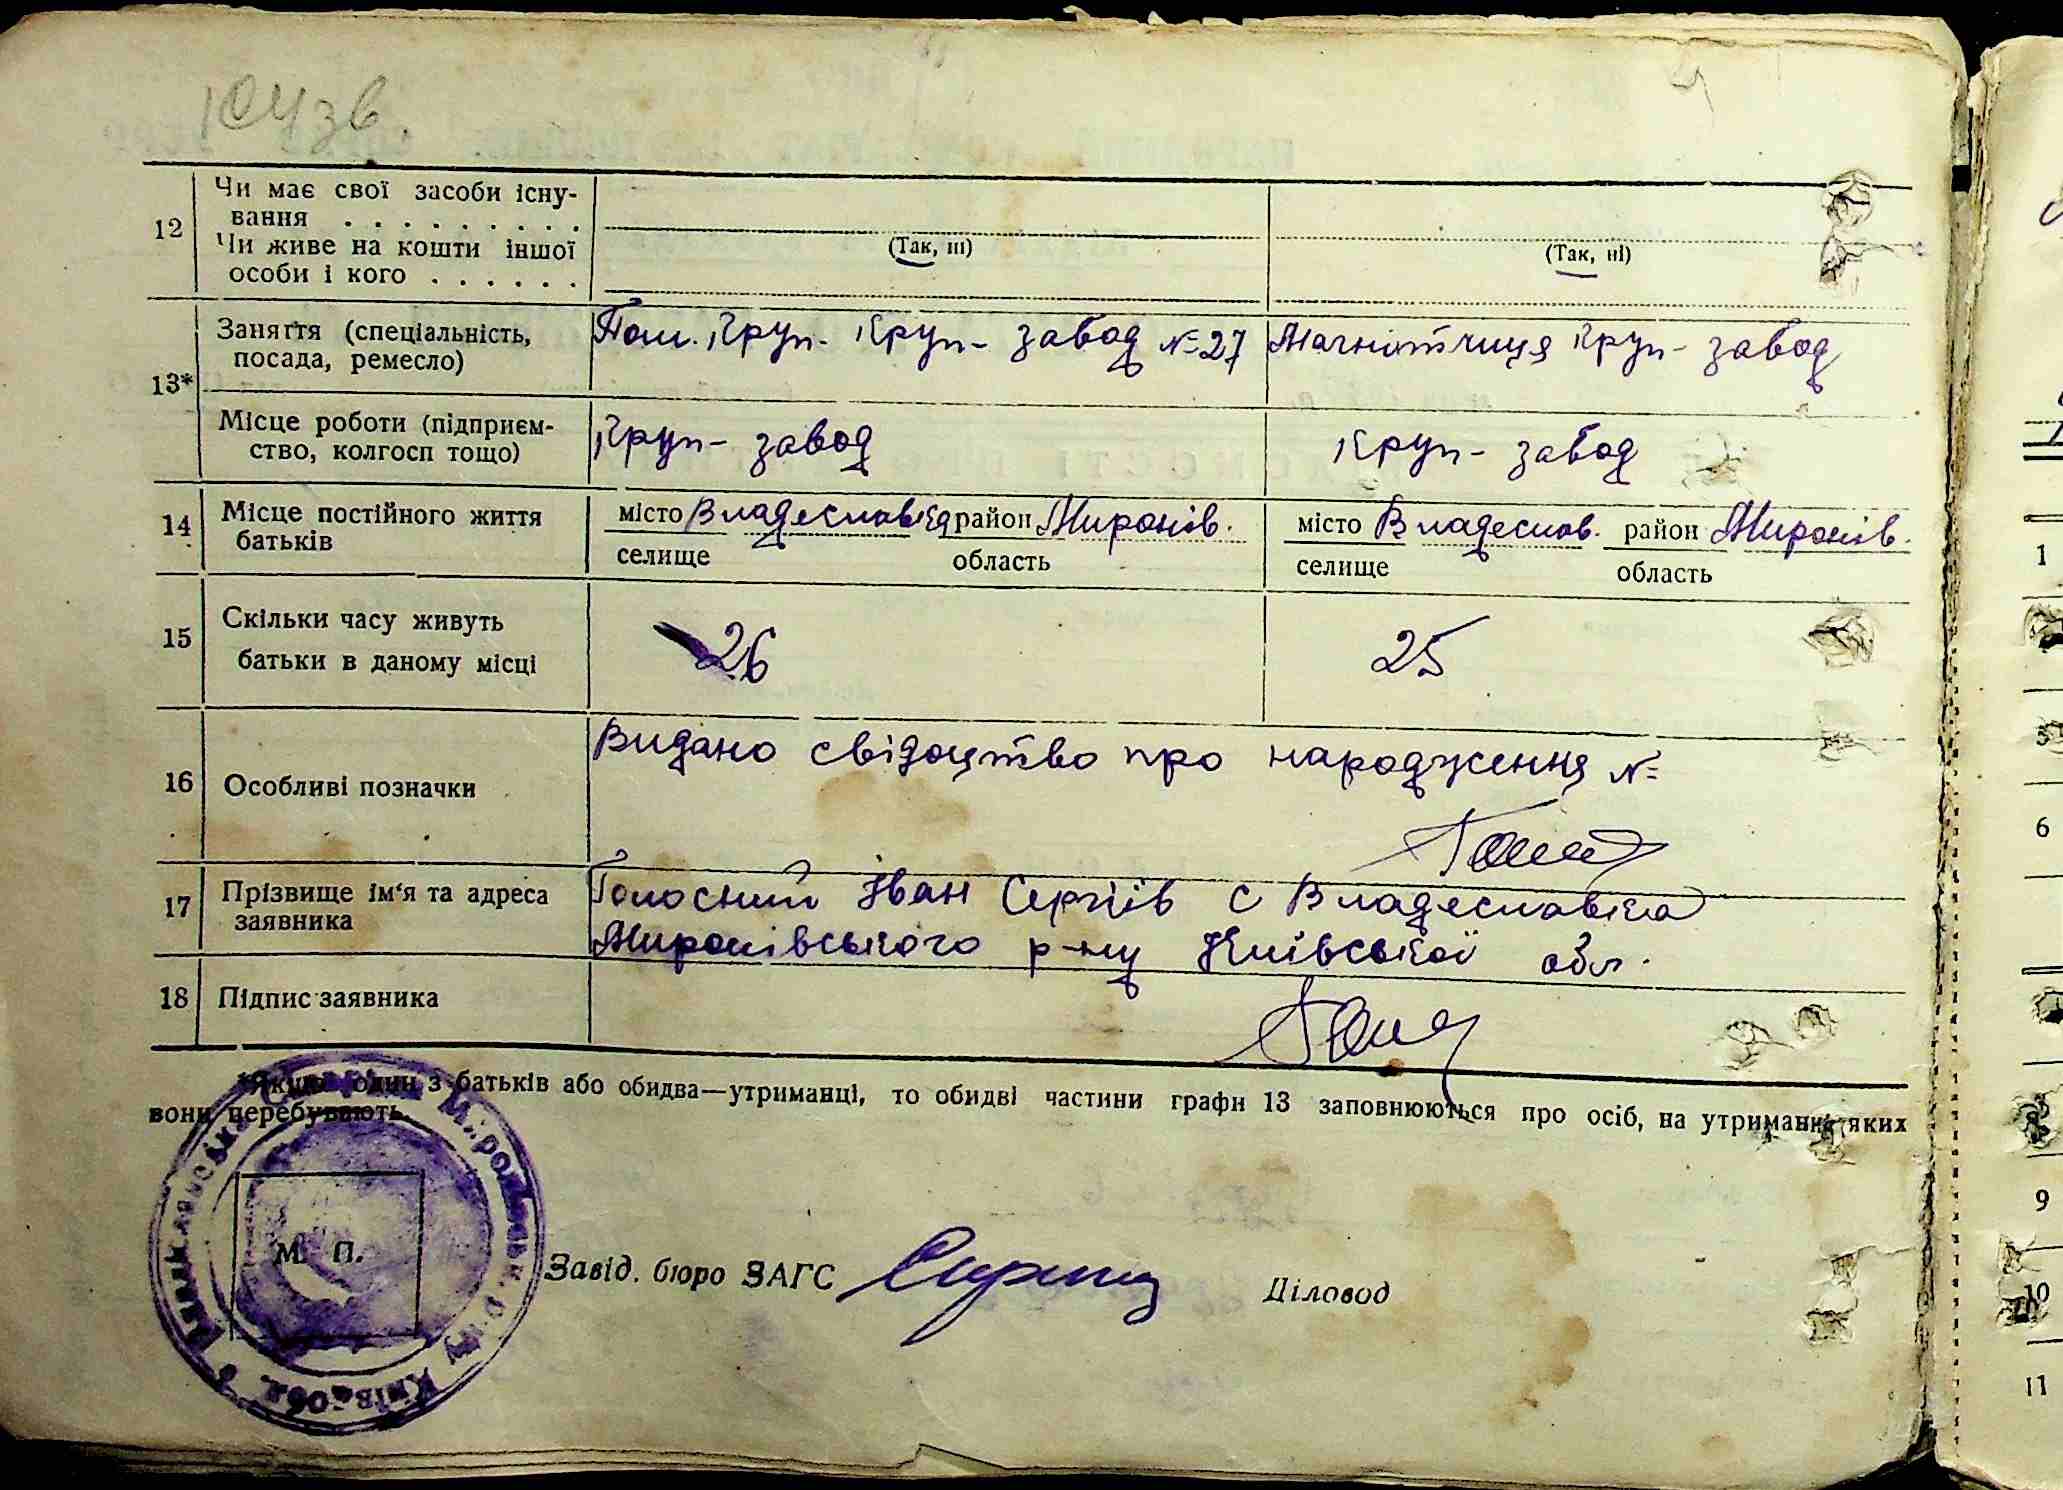 12 Чи має свої засоби існу-
вання . . . . . . . . .
Чи живе на кошти іншої
особи і кого . . . . . .
(Так, ні) (Так, ні)
13* Заняття (спеціальність,
посада, ремесло)
Пом. Круп. Круп- завод №27 Магнітчиця Круп- завод
Місце роботи (підприєм-
ство, колгосп тощо)
Круп- завод Круп- завод
14 Місце постійного життя
батьків
місто Владеславка район Миронів. місто Владеслав. район Миронів.
селище область селище область
15 Скільки часу живуть
батьки в даному місці
26 25
16 Особливі позначки
Видано свідоцтво про народження №
17 Прізвище ім'я та адреса
заявника
Голосний Іван Сергіїв с Владеславка
Миронівського р-ну Київської обл.
18 Підпис заявника
*Якщо один з батьків або обидва—утриманці, то обидві частини графи 13 заповнюються про осіб, на утриманні яких
вони перебувають.
М. П.
Завід. бюро ЗАГС Діловод
1
6
9
10
11